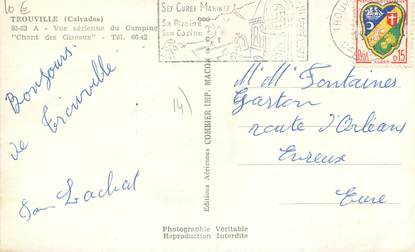 10 €
TROUVILLE (Calvados)
93-62 A - Vue aérienne du Camping
"Chant des Oiseaux" - Tél. 66-42
Bonjours
de Trouville
14)
Editions Aériennes COMBIER IMP. MACON
Photographie Véritable
Reproduction Interdite
SES CURES MARINES
SA PISCINE
SON CASINO
TROUVILLE
0,15
ALGER
M M Fontaines
Gaston
route d'Orléans
Evreux
Eure